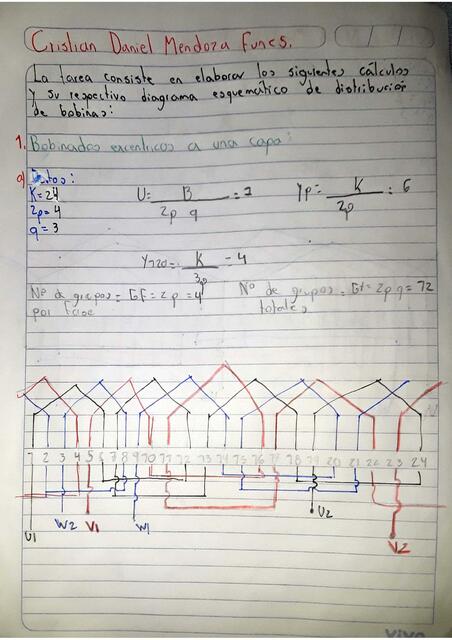 Cristian Daniel Mendoza Funes.
La tarea consiste en elaborar los siguientes cálculos
y su respectivo diagrama esquemático de distribución
de bobinas:
1. Bobinados excentricos a una capa:
a) Datos:
K=24
2p=4
q=3
U= B / 2p q = 1
Yp= K / 2p = 6
Y120= K / 3p = 4
Nº de grupos = GF = 2p = 4
por fase
Nº de grupos = Gt = 2p q = 12
totales
1 2 3 4 5 6 7 8 9 10 11 12 13 14 15 16 17 18 19 20 21 22 23 24
U1
W2
V1
W1
U2
V2
vivo